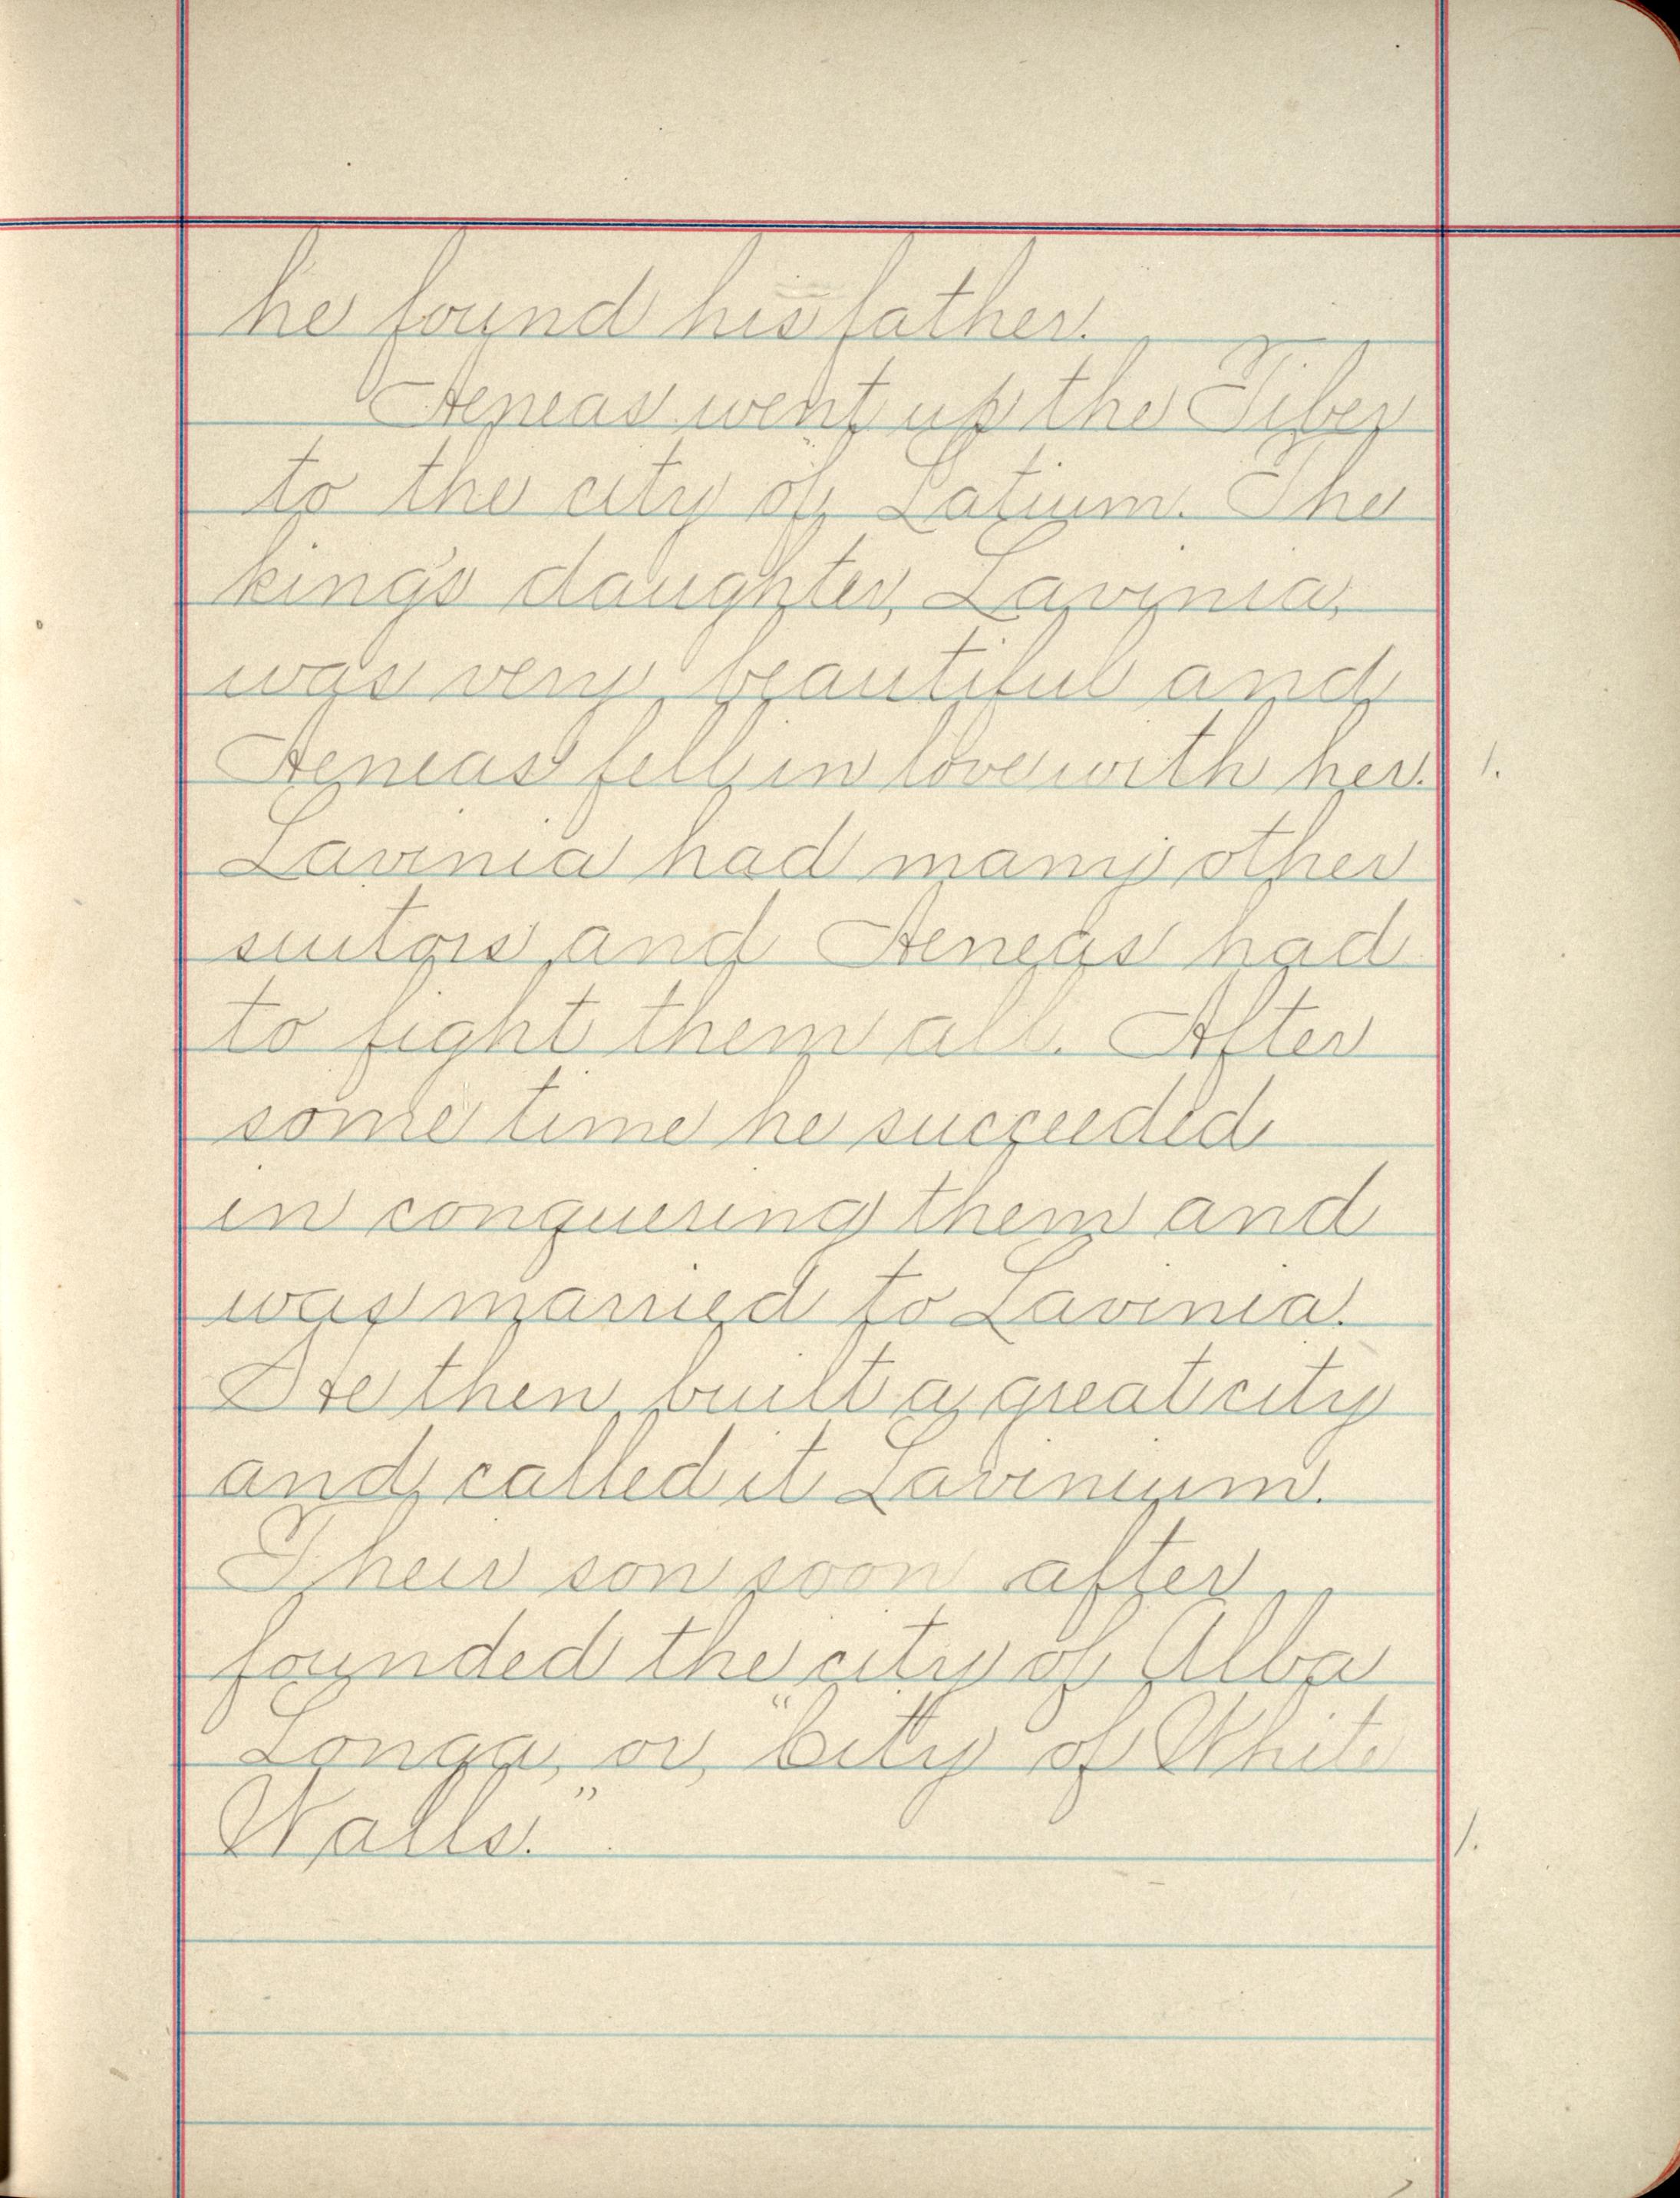 he found his father.
Aeneas went up the Tiber
to the city of Latium. The
king's daughter, Lavinia,
was very beautiful and
Aeneas fell in love with her. 1.
Lavinia had many other
suitors and Aeneas had
to fight them all. After
some time he succeeded
in conquering them and
was married to Lavinia.
He then built a great city
and called it Lavinium.
Their son soon after
founded the city of Alba
Longa, or, "City of White
Walls." 1.